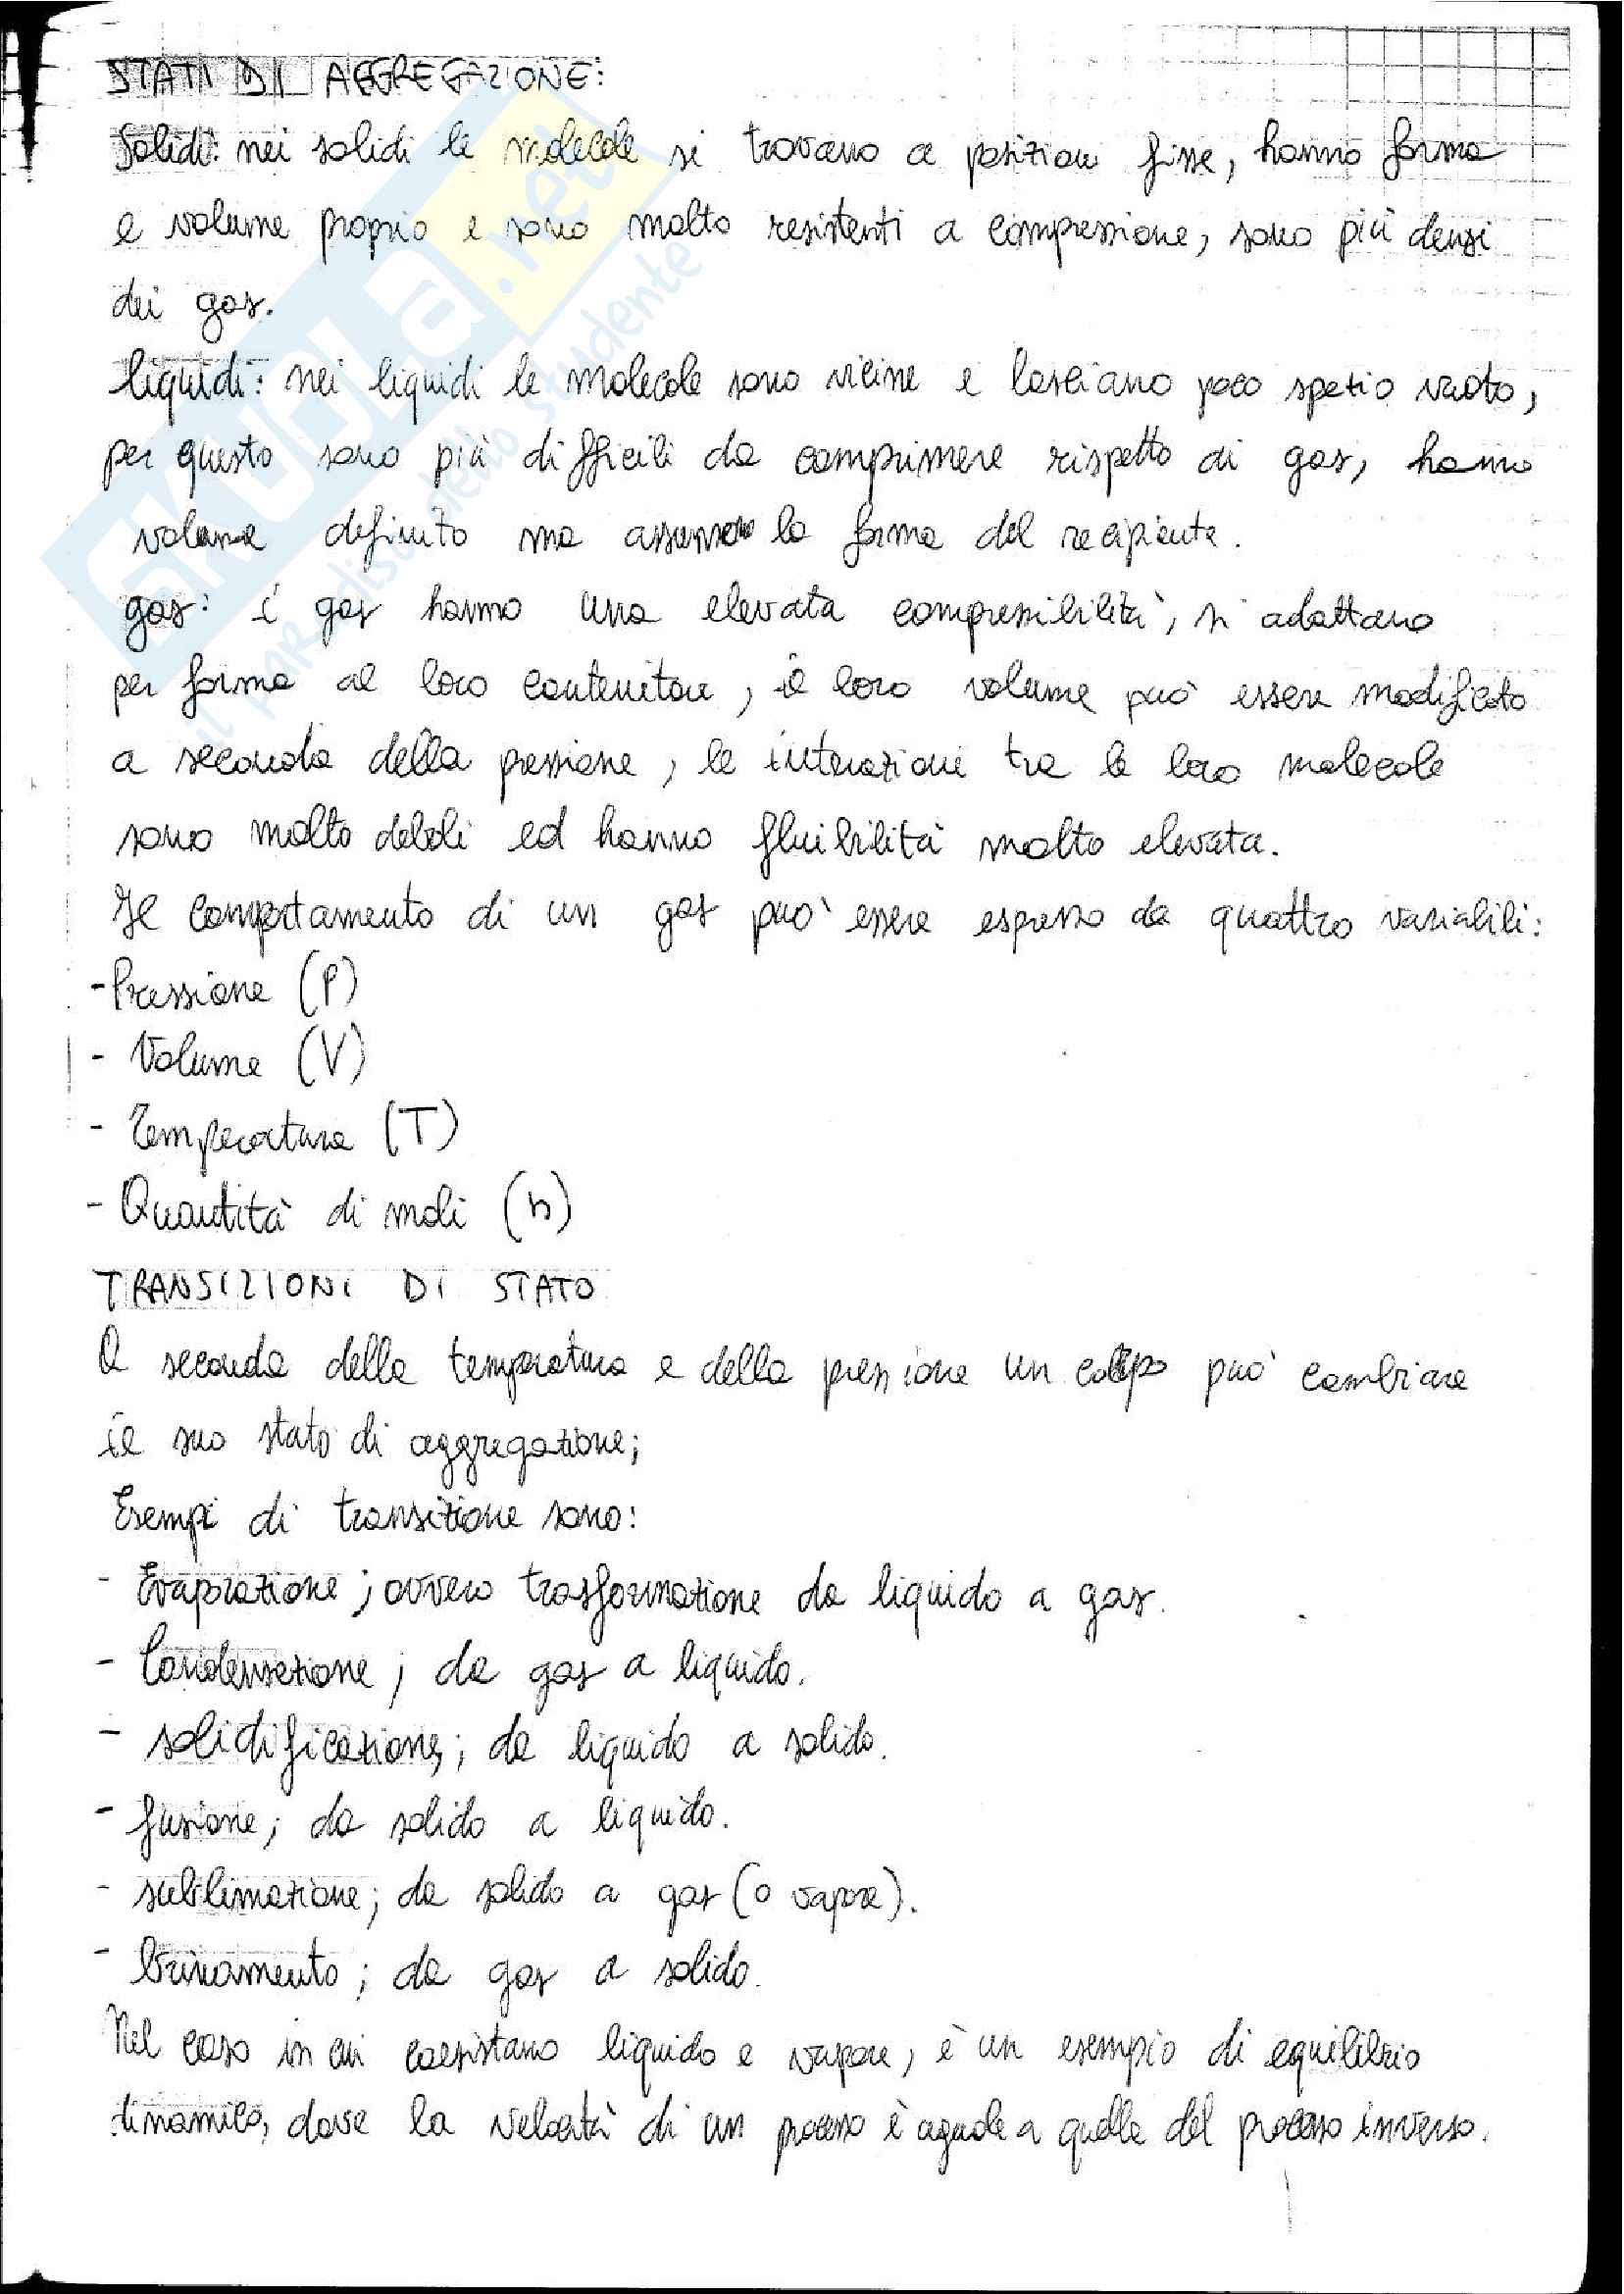 STATI DI AGGREGAZIONE:
Solidi: nei solidi le molecole si trovano a posizioni fisse, hanno forma
e volume proprio e sono molto resistenti a compressione, sono più densi
dei gas.
liquidi: nei liquidi le molecole sono vicine e lasciano poco spazio vuoto,
per questo sono più difficili da comprimere rispetto ai gas, hanno
volume definito ma assumono la forma del recipiente.
gas: i gas hanno una elevata compressibilità, si adattano
per forma al loro contenitore, il loro volume può essere modificato
a seconda della pressione, le interazioni tra le loro molecole
sono molto deboli ed hanno fluibilità molto elevata.
Il comportamento di un gas può essere espresso da quattro variabili:
-Pressione (P)
- Volume (V)
- Temperatura (T)
- Quantità di moli (n)
TRANSIZIONI DI STATO
A seconda della temperatura e della pressione un corpo può cambiare
il suo stato di aggregazione;
Esempi di transizione sono:
- Evaporazione; ovvero trasformazione da liquido a gas.
- Condensazione; da gas a liquido.
- solidificazione; da liquido a solido.
- fusione; da solido a liquido.
- sublimazione; da solido a gas (o vapore).
- brinamento; da gas a solido.
Nel caso in cui coesistano liquido e vapore, è un esempio di equilibrio
dinamico, dove la velocità di un processo è aguale a quella del processo inverso.
SKUOLA.net
il PARadiso dello studente